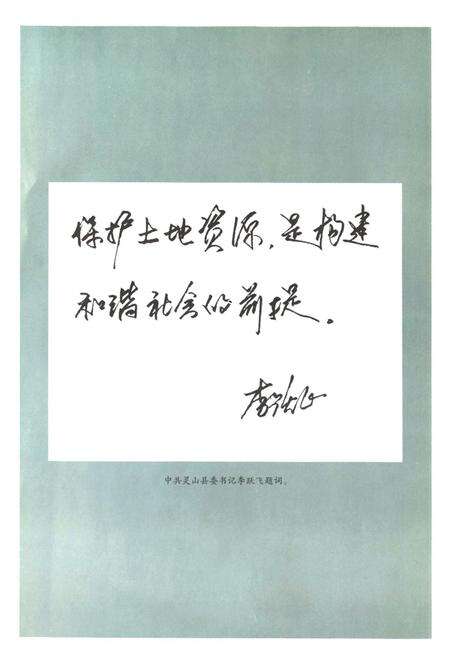 保护土地资源，是构建
和谐社会的前提。
中共灵山县委书记李跃飞题词。